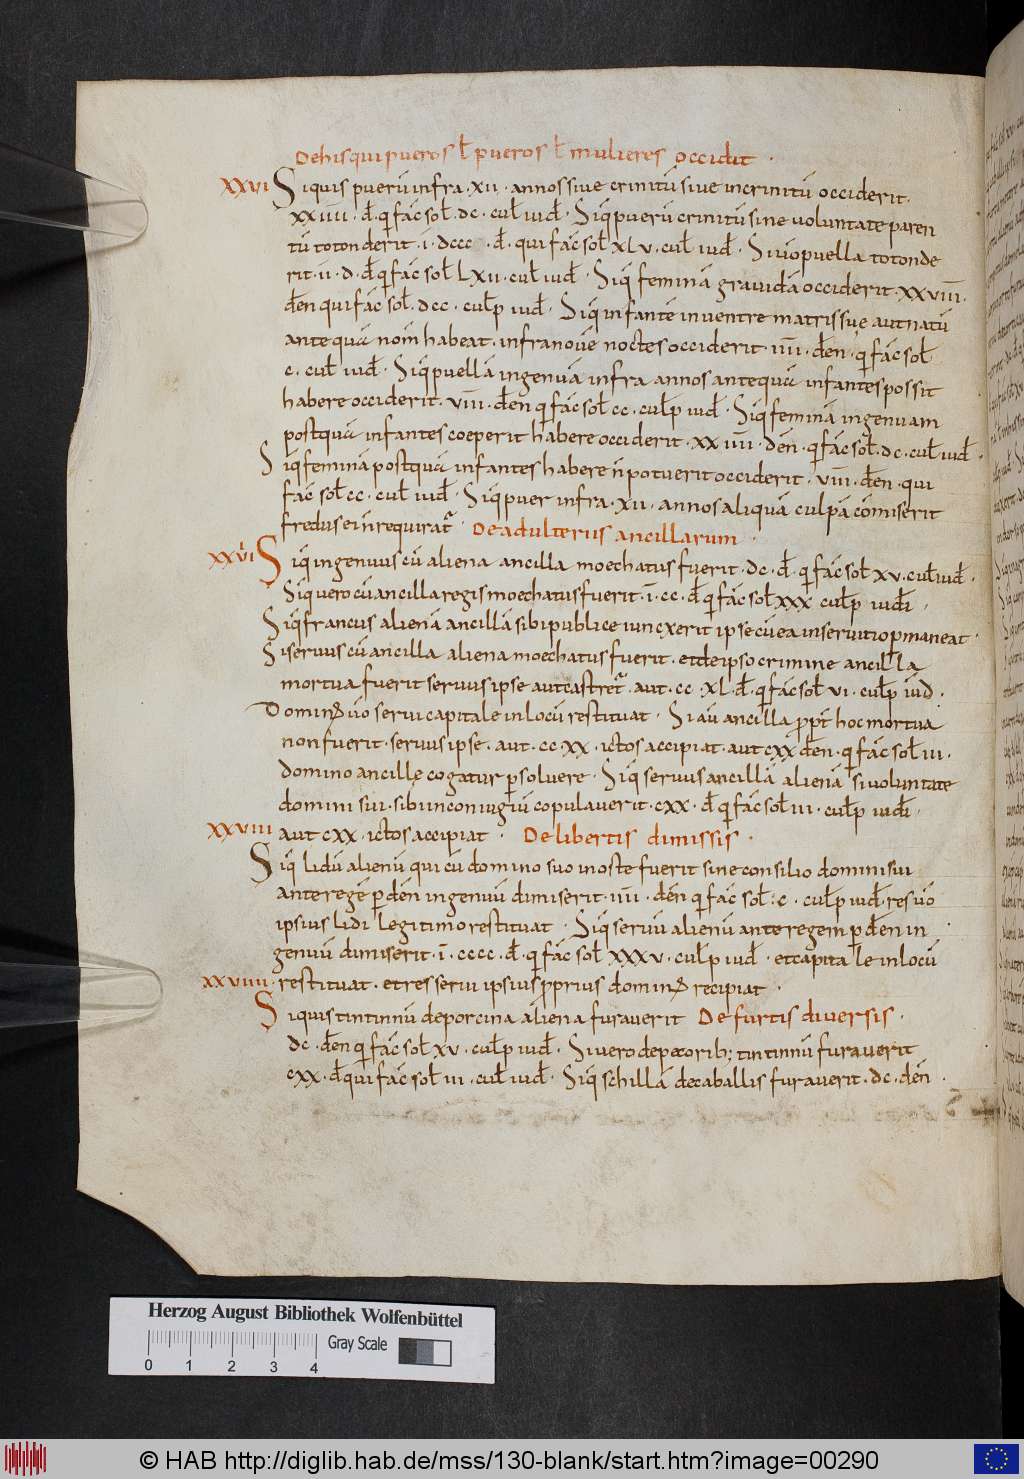 De his qui pueros ł pueros ł mulieres occidit ·
XXVI Siquis puerū infra · XII · annos sive crinitū sive incrinitū occiderit ·
XXIIII · đ · q̇ fać sol̄ · dc · cul̄ iuđ · Siq̇ puerū crinitū sine voluntate paren
tū totonderit · ī · dccc · đ · qui fać sol̄ XLV · cul̄ iuđ · Si ūo puella totonde
rit · ii · d · đ q̇ fać sol̄ LXII · cul̄ iuđ · Siq̇ feminā gravidā occiderit · XXVIII ·
đen qui fać sol̄ · dcc · cul̄p iuđ · Siq̇ infantē in ventre matris sue aut natū
ante quā nom̄ habeat · infra noūe noctes occiderit · IIII · đen · q̇ fać sol̄
c · cul̄ iuđ · Siq̇ puellā ingenuā infra annos ante quā infantes possit
habere occiderit · VIII · đen q̇ fać sol̄ cc · cul̄p iuđ · Siq̇ feminā ingenuam
postquā infantes coeperit habere occiderit · XXIIII · đen · q̇ fać sol̄ · dc · cul̄ iuđ ·
Siq̇ feminā postquā infantes habere ñ potuerit occiderit · VIII · đen · qui
fać sol̄ cc · cul̄ iuđ · Siq̇ puer infra · XII · annos aliquā culpā cōmiserit
fredus ei ñ requirat̄ · De adulteriis ancillarum ·
XXVII Siq̇ ingenuus cū aliena ancilla moechatus fuerit · dc · đ · q̇ fać sol̄ XV · cul̄ iuđ ·
Siq̇ uero cū ancilla regis moechatus fuerit · ī · cc · đ q̇ fać sol̄ XXX cul̄p iuđi ·
Siq̇ francus alienā ancillā sibi publice iuncxerit ipse cū ea in servitio p̄maneat ·
Si servus cū ancilla aliena moechatus fuerit · et de ipso crimine ancilla
mortua fuerit servus ipse aut castret̄ · aut · cc · XL · đ · q̇ fać sol̄ VI · cul̄p iuđ ·
Domino ūo servi capitale in locū restituat · Si aū ancilla ꝓpt̄ hoc mortua
non fuerit · servus ipse · aut · cc XX · ictos accipiat · aut cXX đen · q̇ fać sol̄ III ·
domino ancille cogatur p̄solvere · Siq̇ servus ancillā alienā si voluntate
domini sui · sibi in coniugiū copulaverit · cXX · đ q̇ fać sol̄ III · cul̄p iuđi ·
XXVIII aut cXX · ictos accipiat · De libertis dimissis ·
Siq̇ lidū alienū qui cū domino suo in oste fuerit sine consilio domini sui
ante regē p̄ đen ingenuū dimiserit · IIII · đen q̇ fać sol̄ · c · cul̄p iuđ · res ūo
ipsius lidi legitimo restituat · Siq̇ servū alienū ante regem p̄ đen in
genuū dimiserit · ī · cccc · đ · q̇ fać sol̄ XXXV · cul̄p iuđ · et capitale in locū
XXVIIII · restituat · et res servi ipsius ꝓprius dominus recipiat ·
Siquis tintinnū de porcina aliena furaverit De furtis diversis ·
dc · đen q̇ fać sol̄ XV · cul̄p iuđ · Si vero de pecorib; tintinnū furaverit
cXX · đ qui fać sol̄ III · cul̄ iuđ · Siq̇ schillā de caballis furaverit · dc · đen ·
Herzog August Bibliothek Wolfenbüttel
Gray Scale
0 1 2 3 4
© HAB http://diglib.hab.de/mss/130-blank/start.htm?image=00290